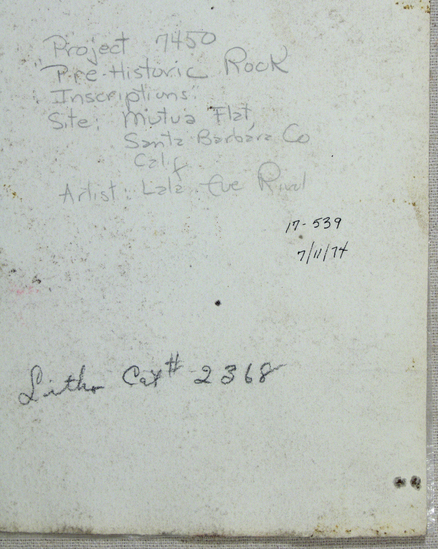 Project 7450
"Pre-Historic Rock
Inscriptions".
Site: Mutua Flat,
Santa Barbara Co
Calif.
Artist: Lala Eve Rivol
17-539
7/11/74
Litho Cat # 2368